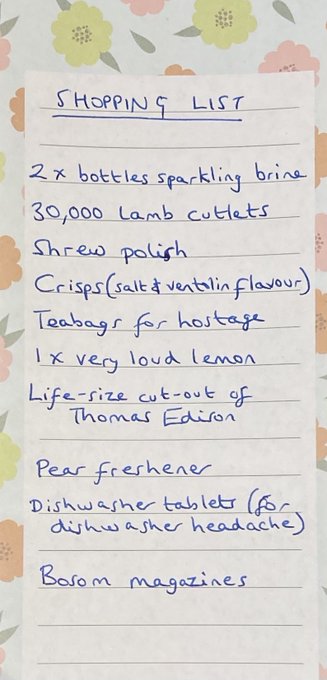 SHOPPING LIST
2 x bottles sparkling brine
30,000 Lamb cutlets
Shrew polish
Crisps (salt & ventolin flavour)
Teabags for hostage
1 x very loud lemon
Life-size cut-out of
Thomas Edison
Pear freshener
Dishwasher tablets (for
dishwasher headache)
Bosom magazines